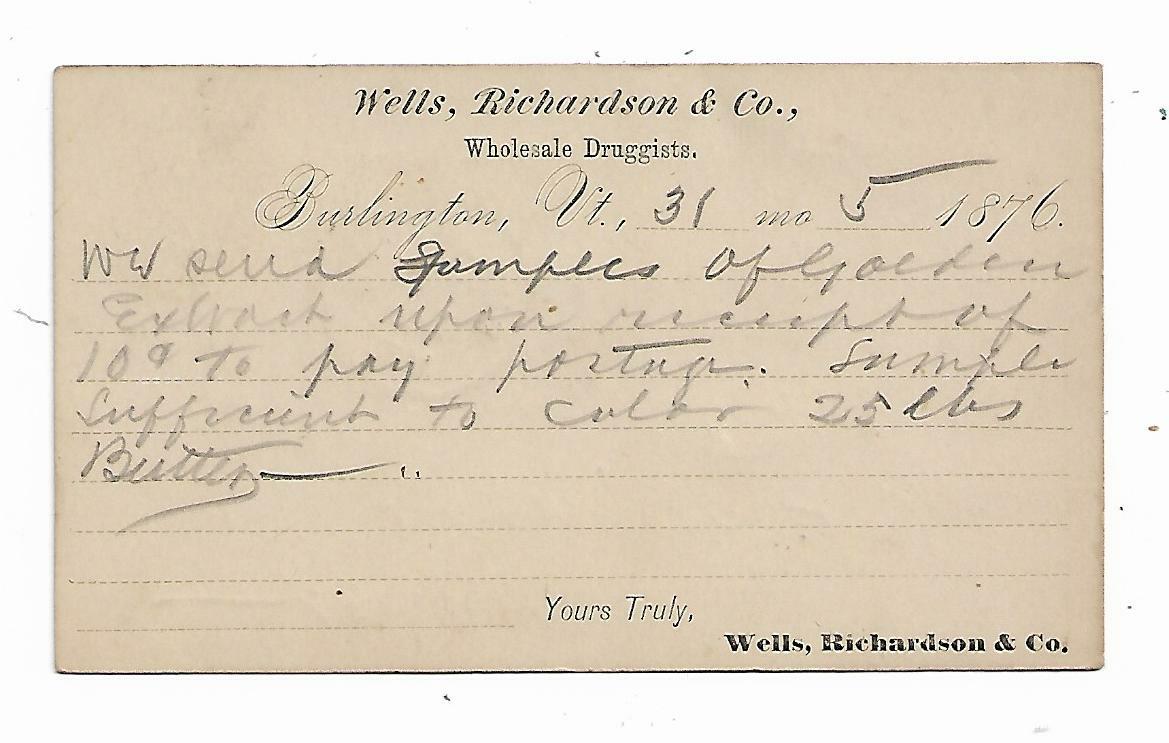 Wells, Richardson & Co.,
Wholesale Druggists.
Burlington, Vt., 31 mo 5 1876.
We send Samples of Golden
Extract upon receipt of
10¢ to pay postage. Sample
Sufficient to color 25 lbs
Butter —
Yours Truly,
Wells, Richardson & Co.